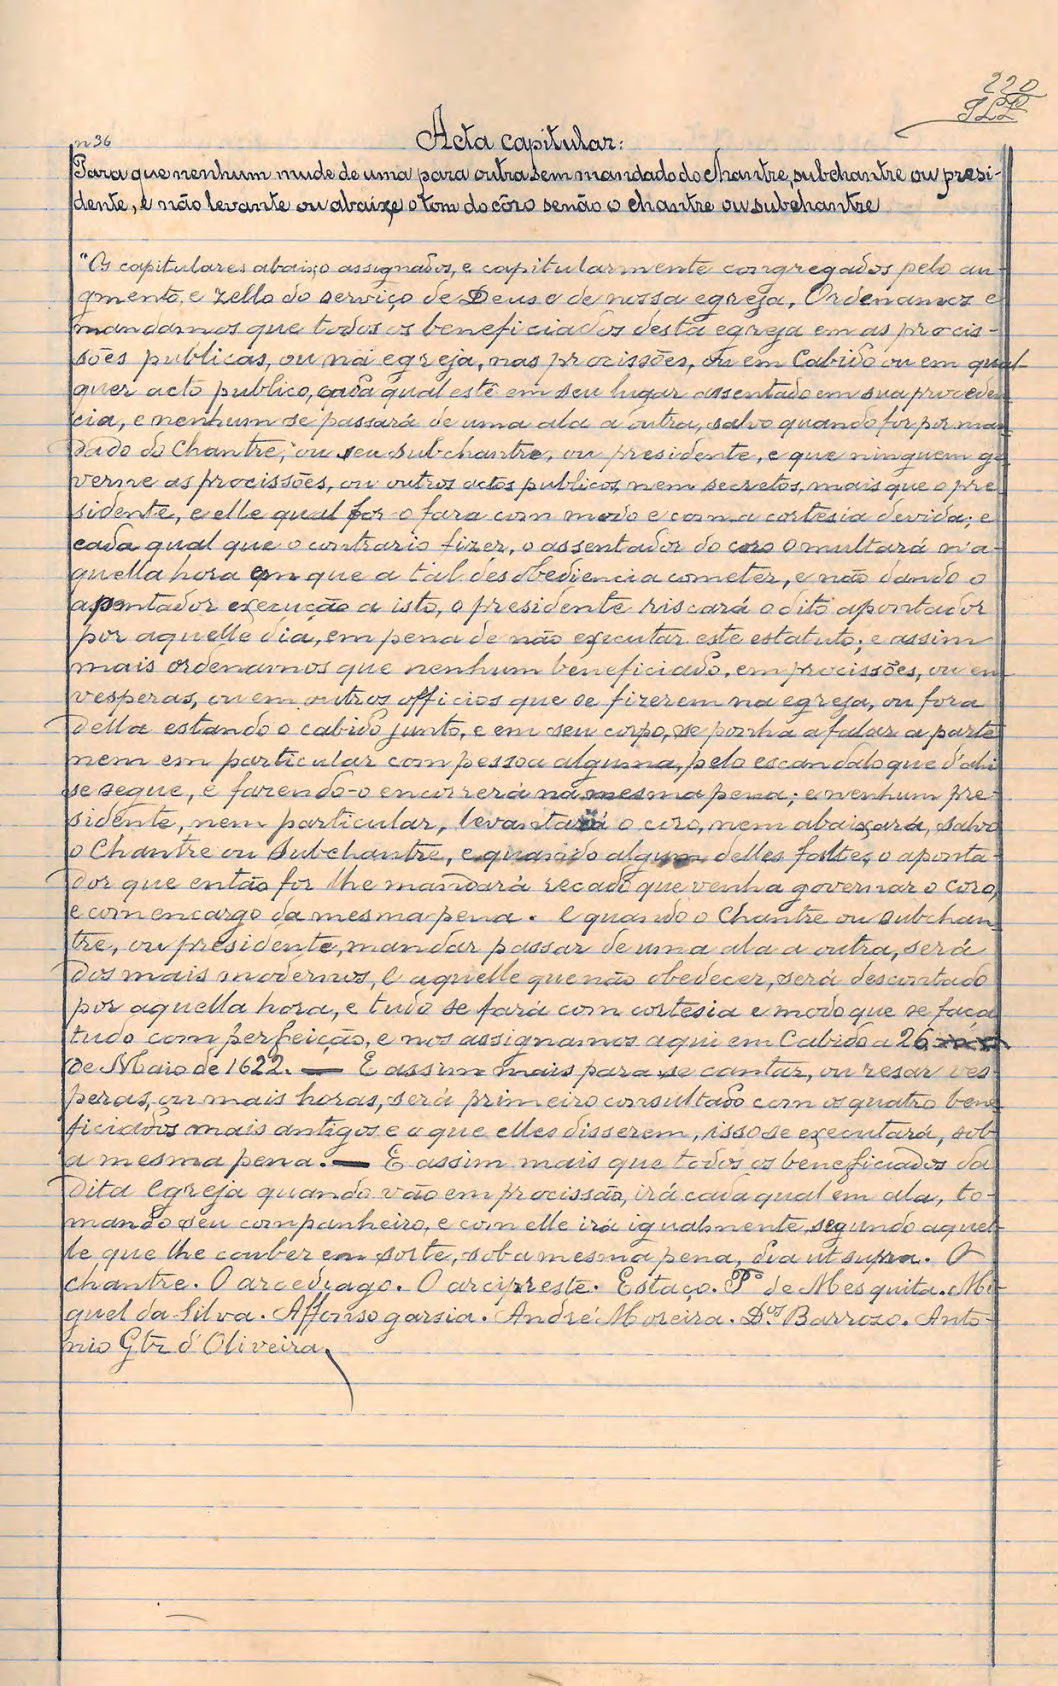 220
n 36
Acta capitular:
Para que nenhum mude de uma para outra sem mandado do chantre, subchantre ou presi-
dente, e não levante ou abaixe o tom do côro senão o chantre ou subchantre
"Os capitulares abaixo assignados, e capitularmente congregados pelo au-
gmento, e zello do serviço de Deus e de nossa egreja, Ordenamos e
mandamos que todos os beneficiados desta egreja em as procis-
sões publicas, ou na egreja, nas procissões, ou em Cabido ou em qual-
quer acto publico, cada qual esté em seu lugar assentado em sua proceden
cia, e nenhum se passará de uma ala a outra, salvo quando for por man
dado do Chantre, ou seu subchantre, ou presidente, e que ninguem go
verne as procissões, ou outros actos publicos, nem secretos, mais que o pre
sidente, e elle qual for o fara com modo e com a cortesia devida; e
cada qual que o contrario fizer, o assentador do coro o multará n'a-
quella hora em que a tal desobediencia cometer, e não dando o
apontador execução a isto, o presidente riscará o dito apontador
por aquelle dia, em pena de não executar este estatuto; e assim
mais ordenamos que nenhum beneficiado, em procissões, ou em
vesperas, ou em outros officios que se fizerem na egreja, ou fora
della estando o cabido junto, e em seu corpo, se ponha a falar a parte
nem em particular com pessoa alguma, pelo escandalo que d'ahi
se segue, e fazendo-o encorrerá na mesma pena; e nenhum pre-
sidente, nem particular, levantará o coro, nem abaixará, salvo
o Chantre ou Subchantre, e quando algum delles falte, o aponta-
dor que então for lhe mandará recado que venha governar o coro,
e com encargo da mesma pena. e quando o Chantre ou subchan
tre, ou presidente, mandar passar de uma ala a outra, será
dos mais modernos, e aquelle que não obedecer, será descontado
por aquella hora, e tudo se fará com cortesia e modo que se faça
tudo com perfeição, e nos assignamos aqui em Cabido a 26
de Maio de 1622. — E assim mais para se cantar, ou resar ves-
peras, ou mais horas, será primeiro consultado com os quatro bene
ficiados mais antigos e o que elles disserem, isso se executará, sob
a mesma pena. — E assim mais que todos os beneficiados da
dita egreja quando vão em procissão, irá cada qual em ala, to-
mando seu companheiro, e com elle irá igualmente, segundo aquel-
le que lhe couber em sorte, sob a mesma pena, dia ut supra. O
chantre. O arcediago. O arcipreste. Estaço. Pº de Mesquita. Mi-
guel da Silva. Affonso garsia. André Moreira. Dºˢ Barrozo. Anto-
nio Glz d'Oliveira,